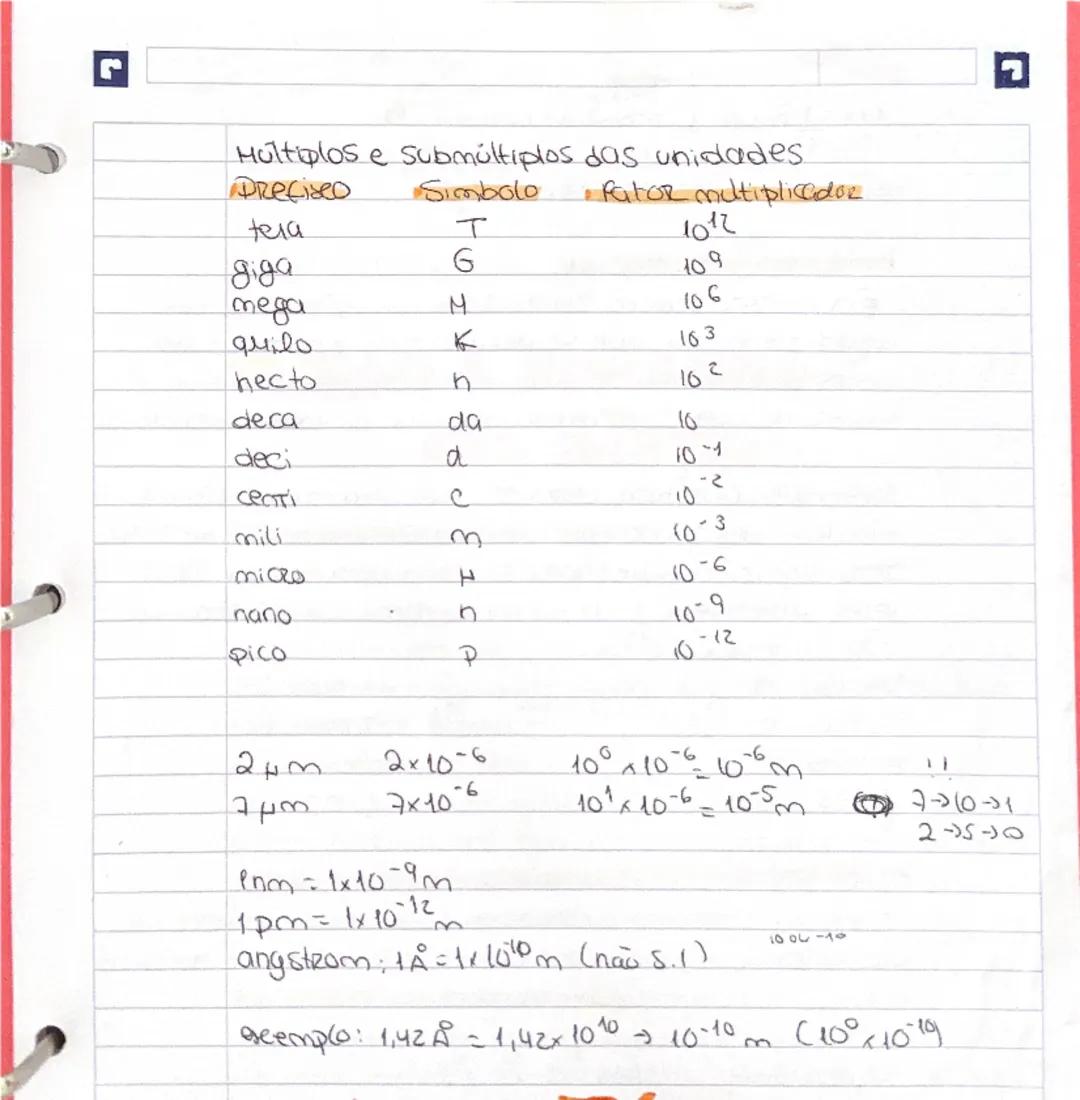 Múltiplos e submúltiplos das unidades
Prefixo Símbolo Fator multiplicador
tera T 10¹²
giga G 10⁹
mega M 10⁶
quilo K 10³
hecto h 10²
deca da 10
deci d 10⁻¹
centi c 10⁻²
mili m 10⁻³
micro μ 10⁻⁶
nano n 10⁻⁹
pico p 10⁻¹²
2 μm 2×10⁻⁶ 10⁰ × 10⁻⁶ = 10⁻⁶ m !!
7 μm 7×10⁻⁶ 10¹ × 10⁻⁶ = 10⁻⁵ m 7→10→1
2→5→0
1nm = 1×10⁻⁹ m
1 pm = 1×10⁻¹² m
10 ou -10
angstrom: 1 Å = 1×10⁻¹⁰ m (não S.I)
exemplo: 1,42 Å = 1,42×10¹⁰ → 10⁻¹⁰ m (10⁰ × 10⁻¹⁰)